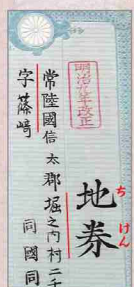 地券
ちけん
明治九年改正
常陸國信太郡堀之内村二千
字篠崎 同國同